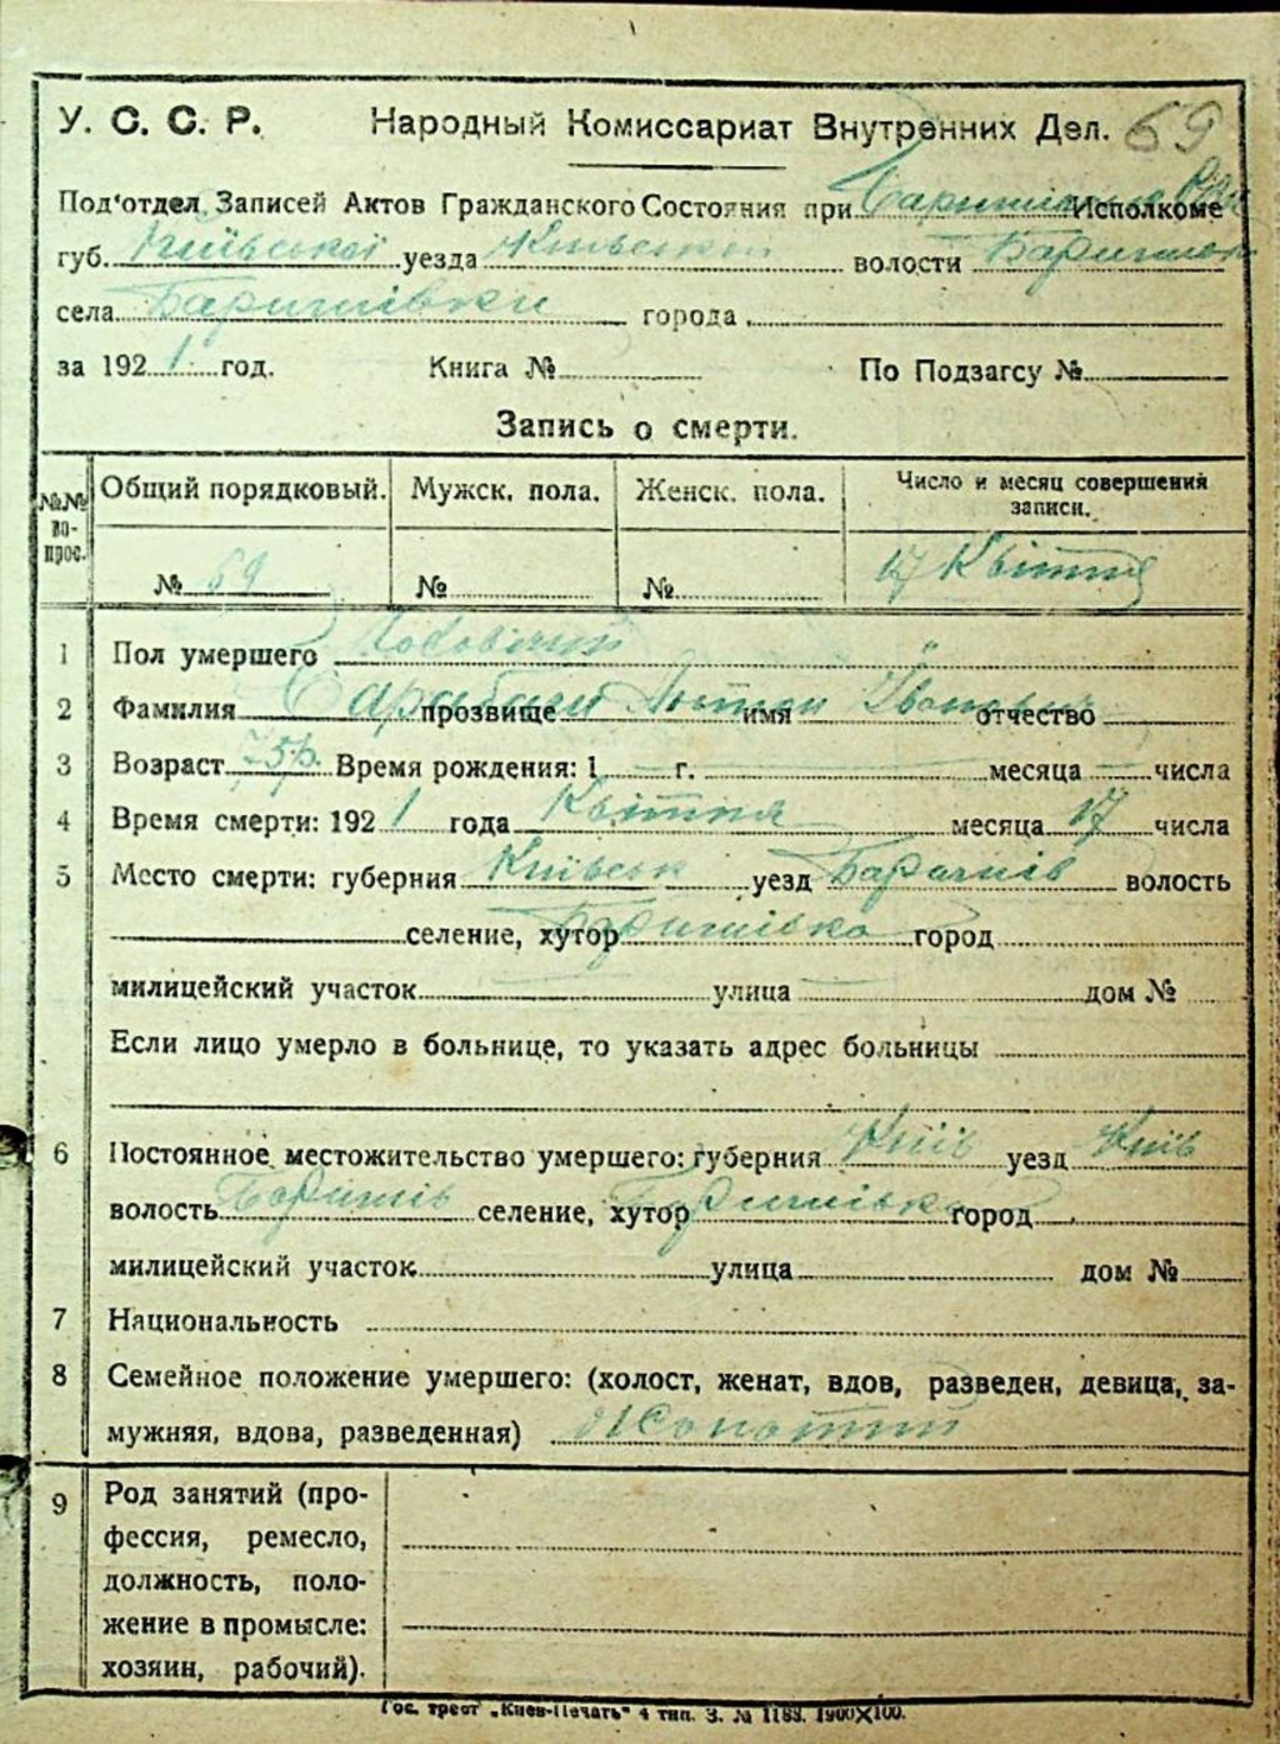 У. С. С. Р. Народный Комиссариат Внутренних Дел. 69
Под'отдел Записей Актов Гражданского Состояния при Исполкоме
губ. Київської уезда Київськом волости Баришівск
села Баришівки города
за 1921 год. Книга № По Подзагсу №
Запись о смерти.
№№ вопрос. Общий порядковый. Мужск. пола. Женск. пола. Число и месяц совершения записи.
№ 69 № № 17 Квітня
1 Пол умершего Чоловічий
2 Фамилия прозвище Антон имя Іванович отчество
3 Возраст 75 р. Время рождения: 1 г. месяца числа
4 Время смерти: 1921 года Квітня месяца 17 числа
5 Место смерти: губерния Київськ уезд Баришів волость
селение, хутор Баришівка город
милицейский участок улица дом №
Если лицо умерло в больнице, то указать адрес больницы
6 Постоянное местожительство умершего: губерния Київ уезд Київ
волость Баришів селение, хутор Баришівка город
милицейский участок улица дом №
7 Национальность
8 Семейное положение умершего: (холост, женат, вдов, разведен, девица, за-
мужняя, вдова, разведенная) Жонатий
9 Род занятий (про-
фессия, ремесло,
должность, поло-
жение в промысле:
хозяин, рабочий).
Гос. трест „Киев-Печать" 4 тип. З. № 1183. 1900X100.